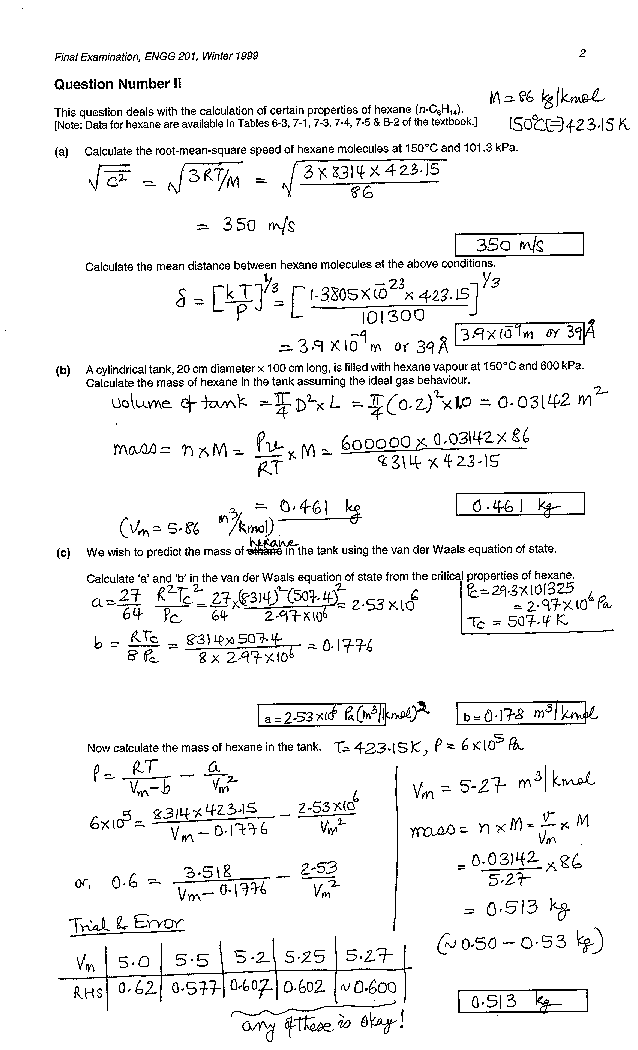 Final Examination, ENGG 201, Winter 1999 2
Question Number II
M = 86 kg/kmol
This question deals with the calculation of certain properties of hexane (n-C₆H₁₄).
[Note: Data for hexane are available in Tables 6-3, 7-1, 7-3, 7-4, 7-5 & B-2 of the textbook.]
150°C(=)423.15 K
(a) Calculate the root-mean-square speed of hexane molecules at 150°C and 101.3 kPa.
√C² = √3RT/M = √(3 × 8314 × 423.15 / 86)
= 350 m/s
350 m/s
Calculate the mean distance between hexane molecules at the above conditions.
δ = [kT/P]^1/3 = [1.3805×10^-23 × 423.15 / 101300]^1/3
= 3.9 × 10^-9 m or 39 Å
3.9×10^-9 m or 39 Å
(b) A cylindrical tank, 20 cm diameter x 100 cm long, is filled with hexane vapour at 150°C and 600 kPa.
Calculate the mass of hexane in the tank assuming the ideal gas behaviour.
Volume of tank = π/4 D² × L = π/4 (0.2)² × 1.0 = 0.03142 m²
mass = n × M = PV/RT × M = 600000 × 0.03142 × 86 / 8314 × 423.15
= 0.461 kg
0.461 kg
(Vm = 5.86 m³/kmol)
hexane
(c) We wish to predict the mass of ethane in the tank using the van der Waals equation of state.
Calculate 'a' and 'b' in the van der Waals equation of state from the critical properties of hexane.
a = 27/64 R²Tc²/Pc = 27/64 × (8314)²(507.4)² / 2.97×10⁶ = 2.53 × 10⁶
Pc = 29.3×101325
= 2.97×10⁶ Pa
Tc = 507.4 K
b = RTc/8Pc = 8314×507.4 / 8 × 2.97×10⁶ = 0.1776
a = 2.53×10⁶ Pa(m³/kmol)²
b = 0.178 m³/kmol
Now calculate the mass of hexane in the tank. T = 423.15K, P = 6×10⁵ Pa
P = RT/(Vm-b) - a/Vm²
6×10⁵ = 8314×423.15/(Vm - 0.1776) - 2.53×10⁶/Vm²
or, 0.6 = 3.518/(Vm - 0.1776) - 2.53/Vm²
Trial & Error
Vm 5.0 5.5 5.2 5.25 5.27
RHS 0.62 0.577 0.607 0.602 ~0.600
any of these is okay!
Vm = 5.27 m³/kmol
mass = n × M = V/Vm × M
= 0.03142/5.27 × 86
= 0.513 kg
(~0.50 - 0.53 kg)
0.513 kg